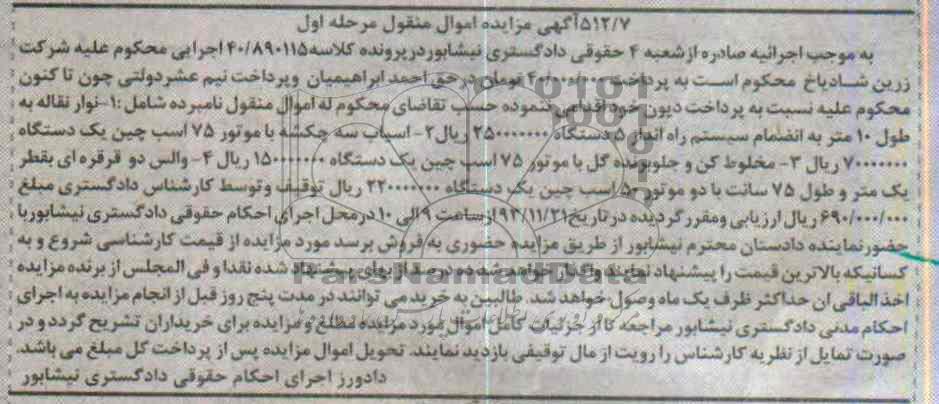 ۵۱۲/۷آگهی مزایده اموال منقول مرحله اول
به موجب اجرائیه صادره از شعبه ۴ حقوقی دادگستری نیشابور در پرونده کلاسه ۴۰/۸۹۰۱۱۵ اجرایی محکوم علیه شرکت
زرین شادیاخ محکوم است به پرداخت ۴۰/۰۰۰/۰۰۰ تومان در حق احمد ابراهیمیان وپرداخت نیم عشردولتی چون تا کنون
محکوم علیه نسبت به پرداخت دیون خود اقدامی ننموده حسب تقاضای محکوم له اموال منقول نامبرده شامل :۱-نوار نقاله به
طول ۱۰ متر به انضمام سیستم راه انداز ۵ دستگاه ۲۵۰۰۰۰۰۰۰ ریال ۲- اسیاب سه چکشه با موتور ۷۵ اسب چین یک دستگاه
۷۰۰۰۰۰۰۰ ریال ۳- مخلوط کن و جلوبرنده گل با موتور ۷۵ اسب چین یک دستگاه ۱۵۰۰۰۰۰۰۰ ریال ۴- والس دو قرقره ای بقطر
یک متر و طول ۷۵ سانت با دو موتور ۵۰ اسب چین یک دستگاه ۲۲۰۰۰۰۰۰۰ ریال توقیف وتوسط کارشناس دادگستری مبلغ
۶۹۰/۰۰۰/۰۰۰ ریال ارزیابی ومقرر گردیده در تاریخ ۹۳/۱۱/۲۱ ازساعت ۹ الی ۱۰ درمحل اجرای احکام حقوقی دادگستری نیشابور با
حضور نماینده دادستان محترم نیشابور از طریق مزایده حضوری به فروش برسد مورد مزایده از قیمت کارشناسی شروع و به
کسانیکه بالاترین قیمت را پیشنهاد نمایند واگذار خواهد شد ده درصد از بهای پیشنهاد شده نقدا و فی المجلس از برنده مزایده
اخذ الباقی ان حداکثر ظرف یک ماه وصول خواهد شد. طالبین به خرید می توانند در مدت پنج روز قبل از انجام مزایده به اجرای
احکام مدنی دادگستری نیشابور مراجعه تا از جزئیات کامل اموال مورد مزایده مطلع و مزایده برای خریداران تشریح گردد و در
صورت تمایل از نظریه کارشناس را رویت از مال توقیفی بازدید نمایند. تحویل اموال مزایده پس از پرداخت کل مبلغ می باشد.
دادورز اجرای احکام حقوقی دادگستری نیشابور
ParsNamadData